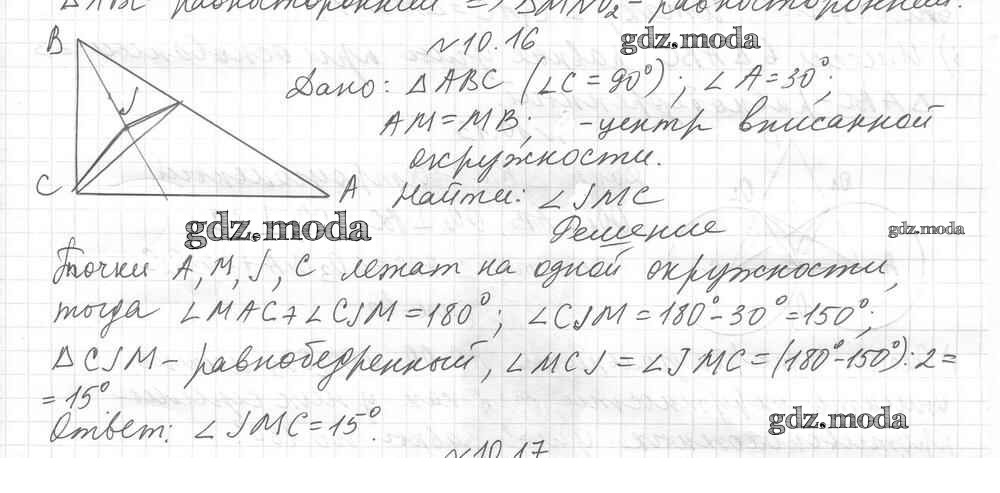 △ABC равносторонний => △MNO₂ - равносторонний.
N10.16
gdz.moda
B
Дано: △ABC (∠C = 90°); ∠A = 30°;
J
AM = MB; - центр вписанной
окружности.
C A Найти: ∠JMC
gdz.moda Решение gdz.moda
Точки A, M, J, C лежат на одной окружности,
тогда ∠MAC + ∠CJM = 180°; ∠CJM = 180° - 30° = 150°;
△CJM - равнобедренный, ∠MCJ = ∠JMC = (180° - 150°) : 2 =
= 15°
gdz.moda
Ответ: ∠JMC = 15°.
N10.17